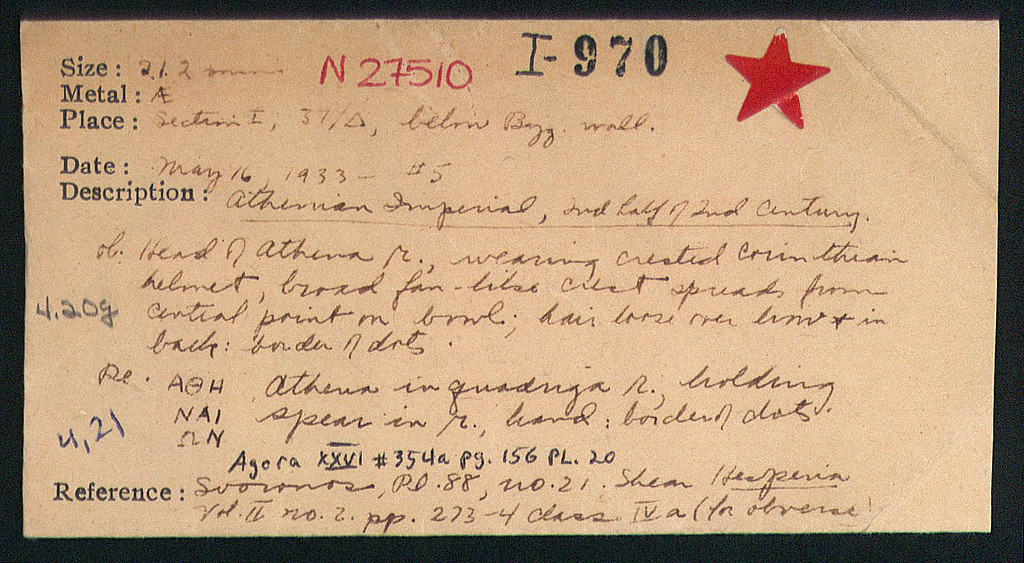 I-970
N 27510
Size: 21.2 mm
Metal: Æ
Place: Section I, 37/Δ, below Byz. wall.
Date: May 16, 1933 - #5
Description: Athenian Imperial, 2nd half of 2nd century.
ob. Head of Athena r., wearing crested Corinthian
helmet, broad fan-like crest spreads from
4.20g central point on bowl; hair loose over brow & in
back: border of dots.
Re. ΑΘΗ Athena in quadriga r., holding
ΝΑΙ spear in r. hand: border of dots.
ΩΝ
4,21
Agora XXVI #354a pg. 156 PL. 20
Reference: Svoronos, Pl. 88, no. 21. Shear Hesperia
Vol. II no. 2. pp. 273-4 class IV a (for obverse)